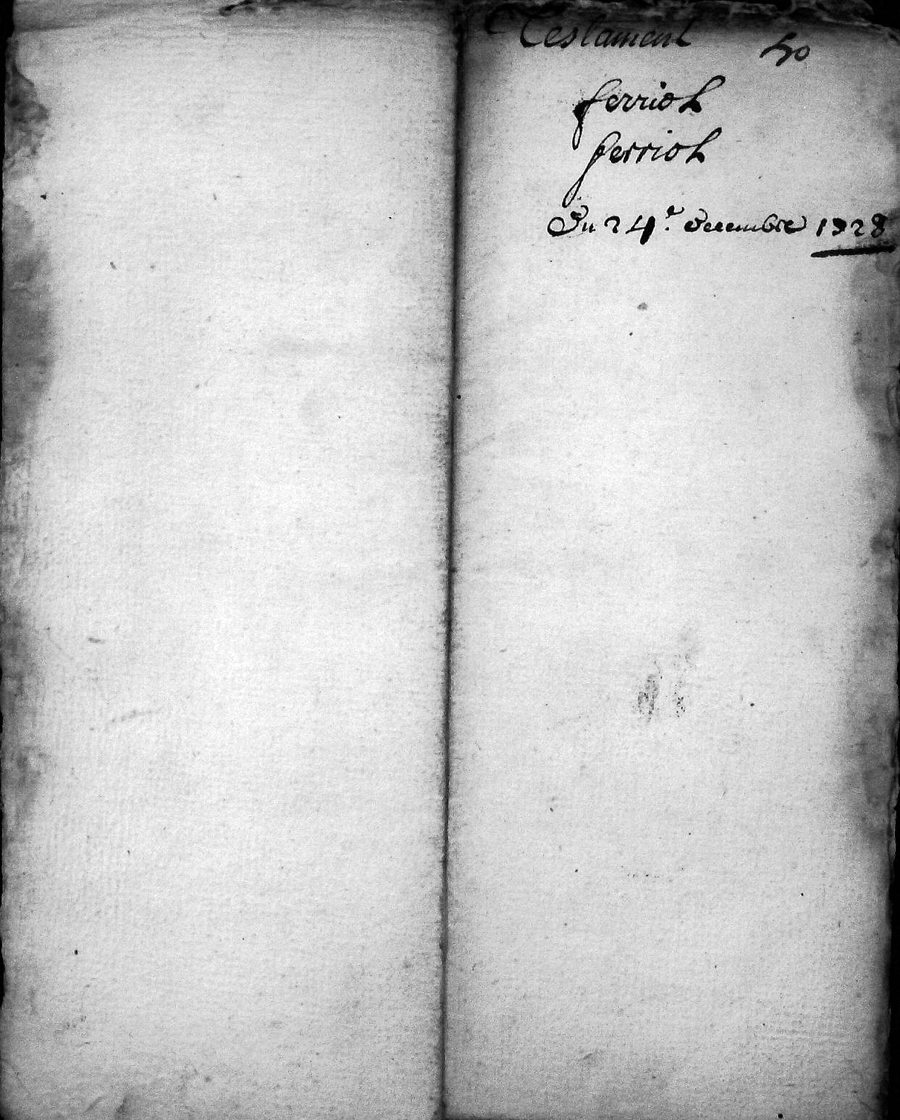 Testament
50
ferriol
ferriol
Du 24e. Decembre 1728